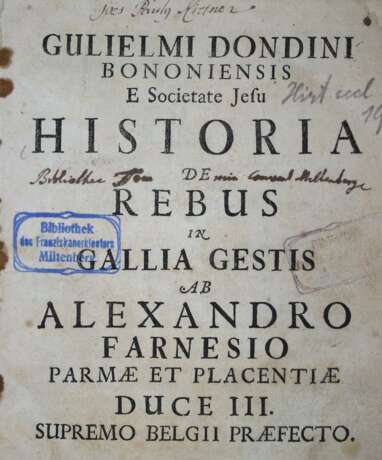 GULIELMI DONDINI
BONONIENSIS
E Societate Jesu
Hist eccl
19
HISTORIA
DE
Bibliothec
REBUS
Bibliothek
des Franziskanerklosters
Miltenberg
IN
GALLIA GESTIS
AB
ALEXANDRO
FARNESIO
PARMÆ ET PLACENTIÆ
DUCE III.
SUPREMO BELGII PRÆFECTO.